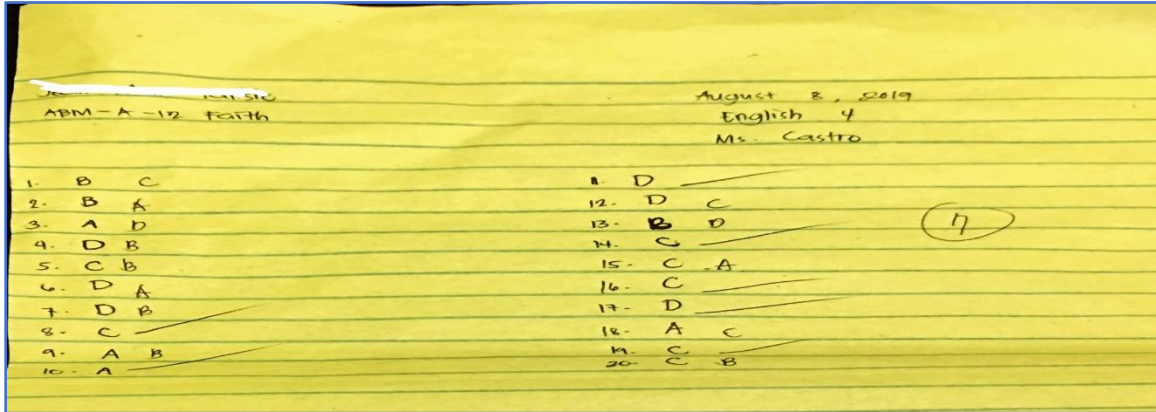 ABM-A-12 Faith
August 8, 2019
English 4
Ms. Castro
1. B C
2. B A
3. A D
4. D B
5. C B
6. D A
7. D B
8. C
9. A B
10. A
11. D
12. D C
13. B D
14. C
15. C A
16. C
17. D
18. A C
19. C
20. C B
7